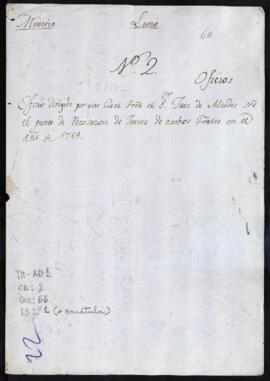 Mineria Lima
60
Nº 2.
Oficios
Oficio dirigido por este Real Tribl. al Sr. Juez de Alzadas sre.
el punto de Recusacion de Juezes de ambos Trales en el
año de 1789.
TM-AD1
CA: 2
DOC: 66
FS: 1 (+ carátula)
22